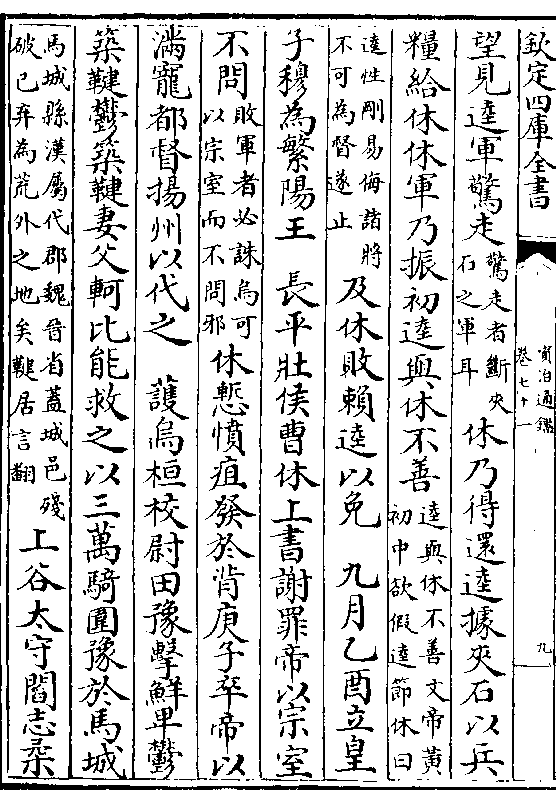 欽定四庫全書
資治通鑑
卷七十一
九
望見逵軍驚走驚走者斷夾石之軍耳休乃得還逵據夾石以兵
糧給休休軍乃振初逵與休不善逵與休不善文帝黄初中欲假逵節休曰
逵性剛易侮諸將不可為督遂止及休敗賴逵以免　九月乙酉立皇
子穆為繁陽王　長平壯侯曹休上書謝罪帝以宗室
不問敗軍者必誅烏可以宗室而不問邪休慙憤疽發於背庚子卒帝以
滿寵都督揚州以代之　護烏桓校尉田豫擊鮮卑鬱
築鞬鬱築鞬妻父軻比能救之以三萬騎圍豫於馬城
馬城縣漢屬代郡魏晉省蓋城邑殘破已弃為荒外之地矣鞬居言翻上谷太守閻志柔